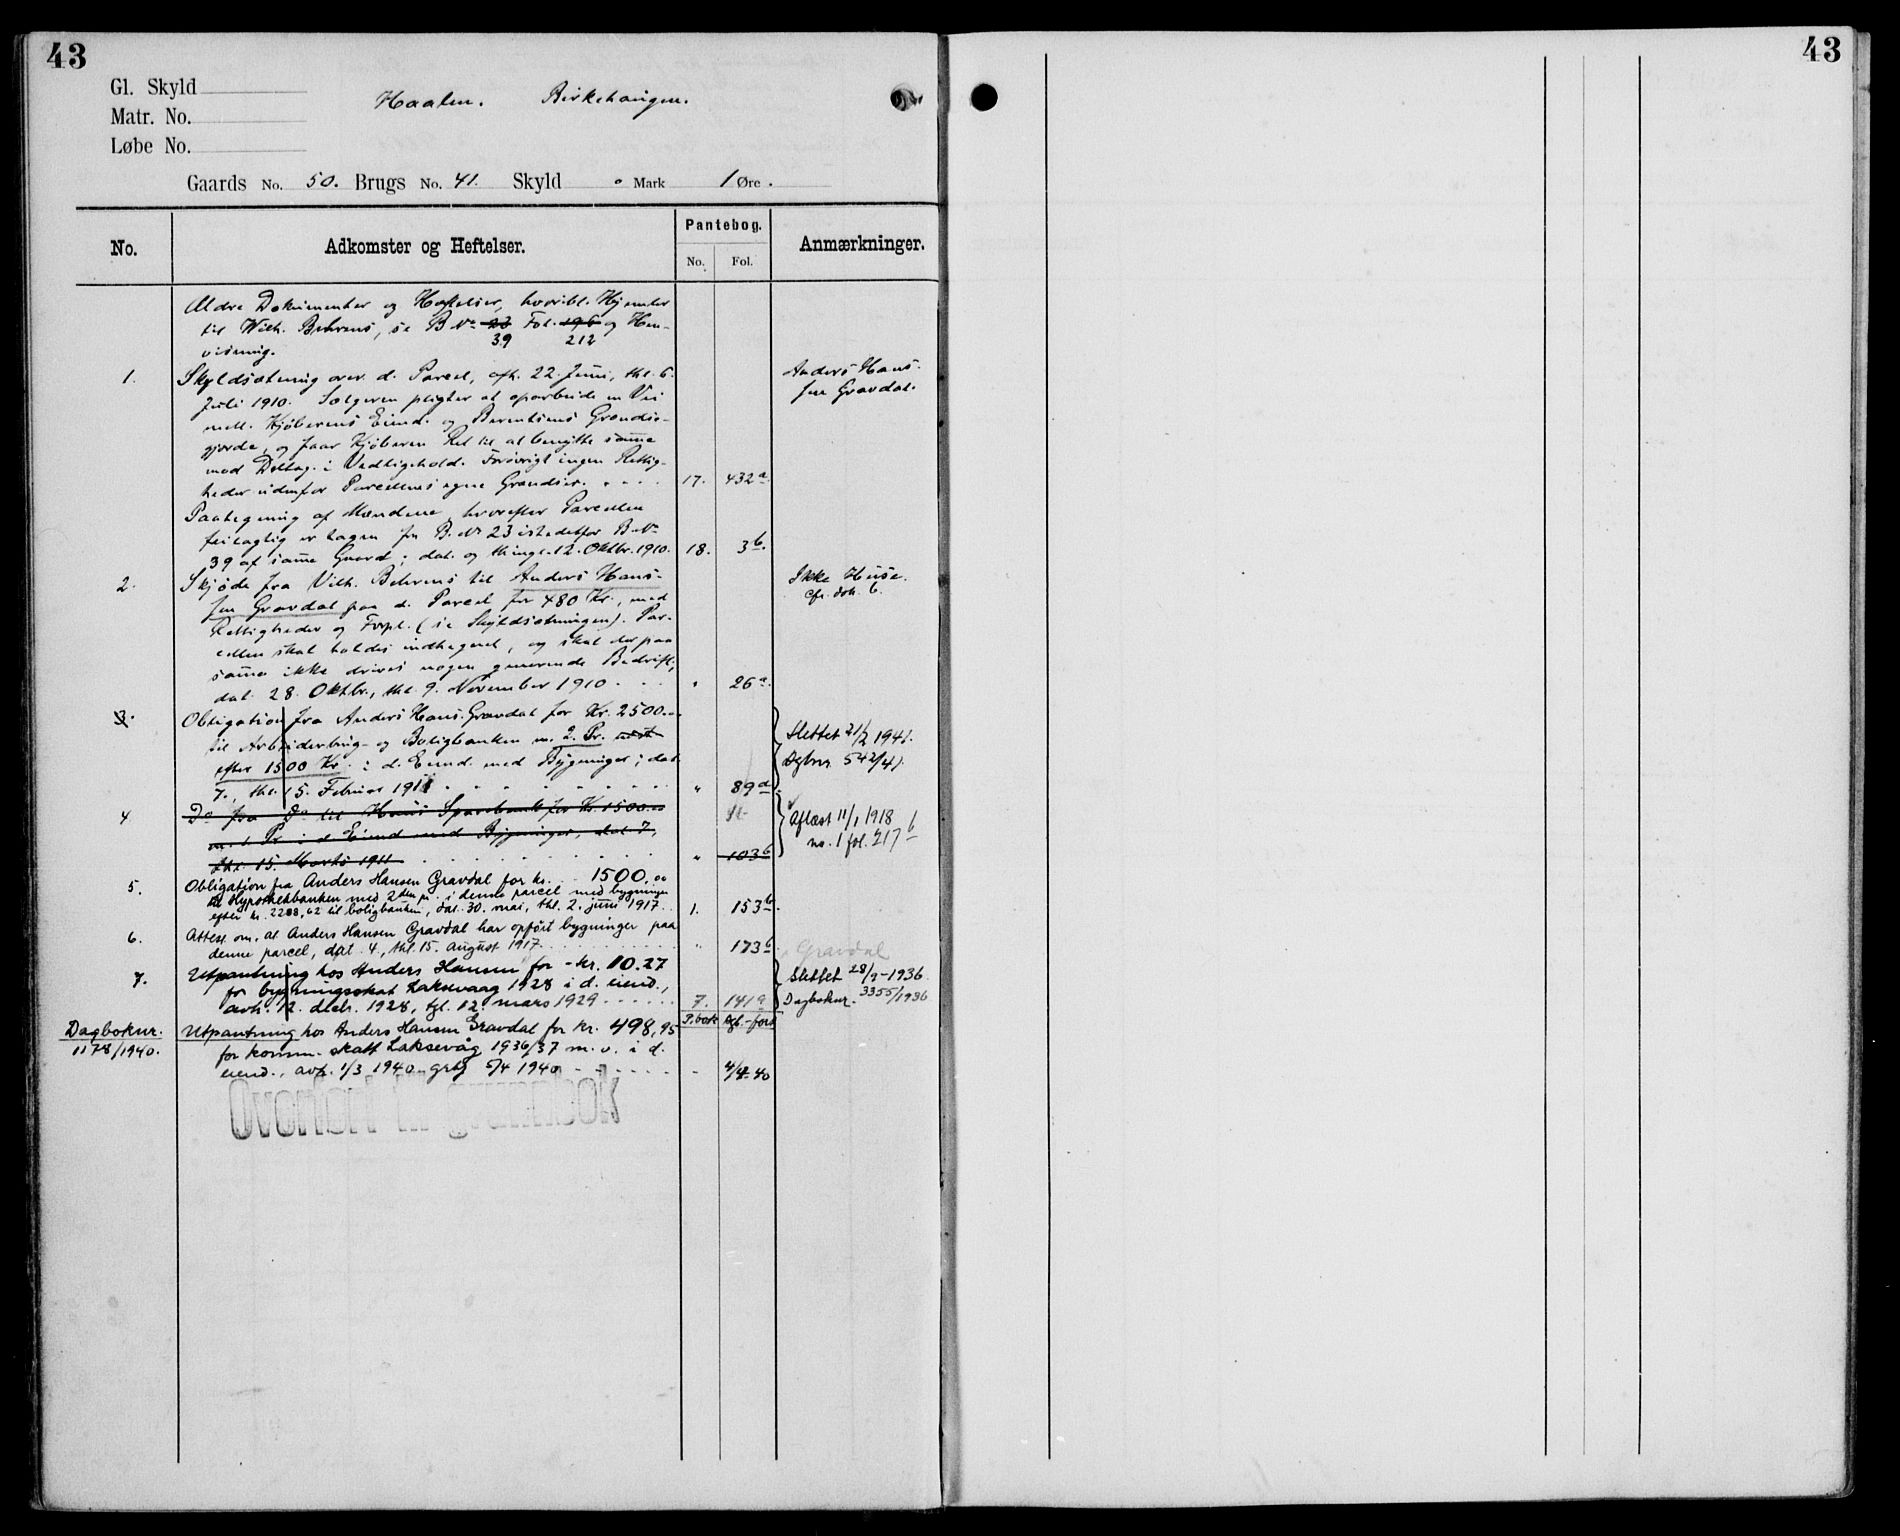 43
43
Gl. Skyld
Matr. No.
Løbe No.
Haalen. Birkehaugen.
Gaards No. 50. Brugs No. 41. Skyld " Mark 1 Øre.
No.
Adkomster og Heftelser.
Pantebog.
No. Fol.
Anmærkninger.
Ældre Dokumenter og Heftelser, hvoribl. Hjemler
til Vilh. Behrens, se B. No 23 Fol. 196 og Hen-
39 212
visning.
1. Skyldsætning over d. Parcel, afh. 22. Juni, thl. 6.
Juli 1910. Sælgeren pligter at oparbeide en Vei
mell. Kjøberens Eiend. og Berentsens Grændse-
gjerde, og faar Kjøberen Ret til at benytte samme
mod Deltag. i Vedligehold. Forøvrigt ingen Rettig-
heder udenfor Parcellens egne Grændser. 17. 432a
Anders Han-
sen Gravdal.
Paategning af Mændene, hvorefter Parcellen
feilagtig er tagen fra B. No 23 istedetfor B. No
39 af samme Gaard; dat. og thingl. 12. Oktbr. 1910. 18. 3b.
2. Skjøde fra Vilh. Behrens til Anders Han-
sen Gravdal paa d. Parcel for 480 Kr., med
Rettigheder og Forpl. (se Skyldsætningen). Par-
cellen skal holdes indhegnet, og skal der paa
samme ikke drives nogen generende Bedrift;
dat. 28. Oktbr., thl. 9. November 1910 " 26a.
Ikke Huse.
cfr. dok. 6.
3. Obligation fra Anders Hans. Gravdal for Kr. 2500.00
til Arbeiderbrug- og Boligbanken m. 2. Pr.
efter 1500 Kr. i d. Eiend. med Bygninger; dat.
7., thl. 15. Februar 1911 " 89d
Slettet 21/2 1941.
Dgbnr. 542/41.
4 Do fra Do til Haus Sparebank for Kr. 1500.00
m. 1. Pr. i d. Eiend. med Bygninger, dat. 7,
thl. 15. Marts 1911 " 103b
Aflæst 11/1 1918
no. 1 fol. 217b
5. Obligation fra Anders Hansen Gravdal for kr. 1500,00
til Hypothekbanken med 2den pr. i denne parcel med bygninger
efter kr. 2288,62 til boligbanken, dat. 30. mai, thl. 2. juni 1917 1. 153b.
6. Attest om, at Anders Hansen Gravdal har opført bygninger paa
denne parcel, dat. 4., thl. 15. August 1917 " 173b
Gravdal
7. Utpantning hos Anders Hansen for kr. 10.27
for bygningsskat Laksevaag 1928 i d. eiend.,
avh. 12. decbr. 1928, tgl. 12. mars 1929 7. 141a
Slettet 28/9-1936
Dagboknr. 3355/1936
P.bok Dgl.-ført
Dagboknr.
1178/1940.
Utpantning hos Anders Hansen Gravdal for kr. 498,95
for komm. skatt Laksevåg 1936/37 m. v. i d.
eiend., avh. 1/3 1940 - grbg 5/4 1940 - 4/4-40
Overført til grunnbok